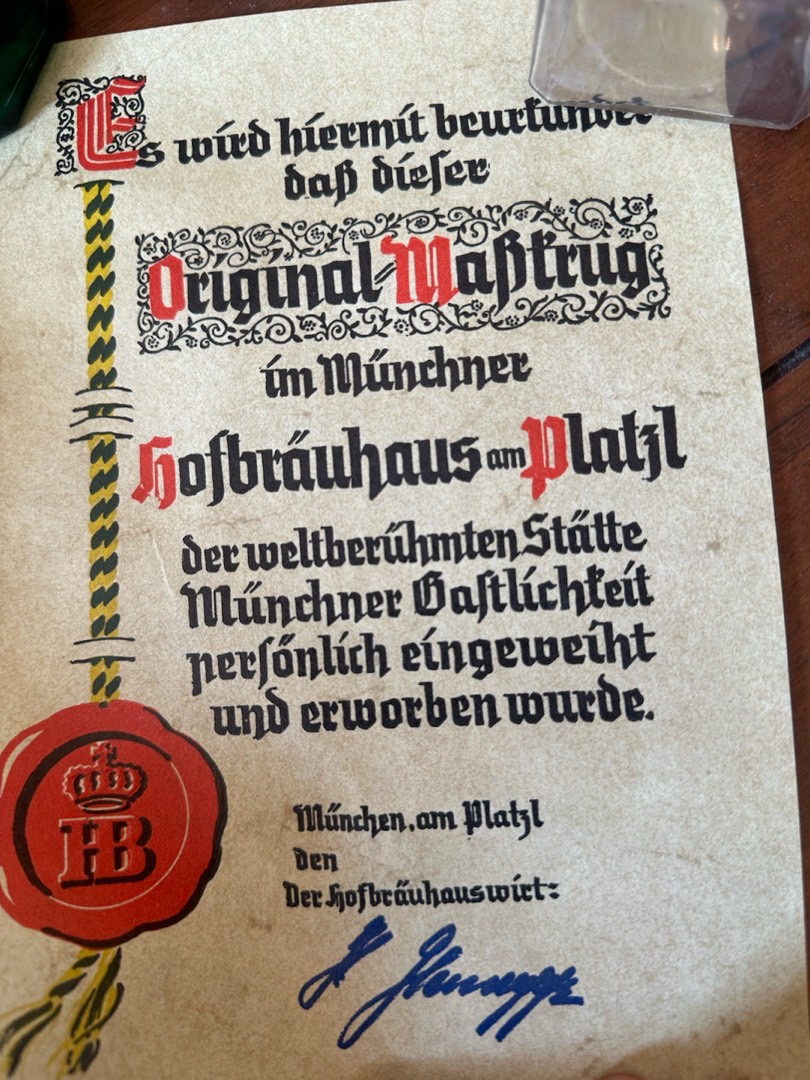 Es wird hiermit beurkundet
daß dieser
Original-Maßkrug
im Münchner
Hofbräuhaus am Platzl
der weltberühmten Stätte
Münchner Gastlichkeit
persönlich eingeweiht
und erworben wurde.
HB
München, am Platzl
den
Der Hofbräuhauswirt: